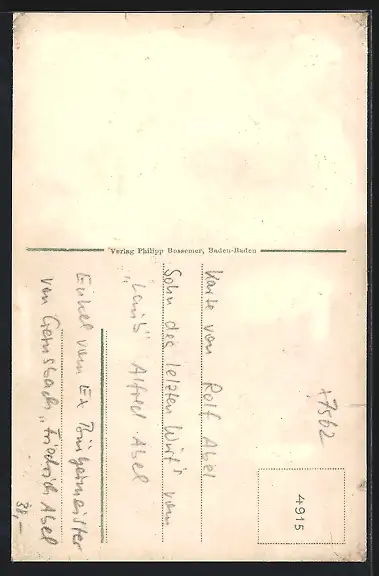 Verlag Philipp Bossemer, Baden-Baden
4915
+7562
Karte von Rolf Abel
Sohn des letzten Wirt's vom
Alfred Abel
Enkel vom Ex Bürgermeister
von Gernsbach, Friedrich Abel
38,-